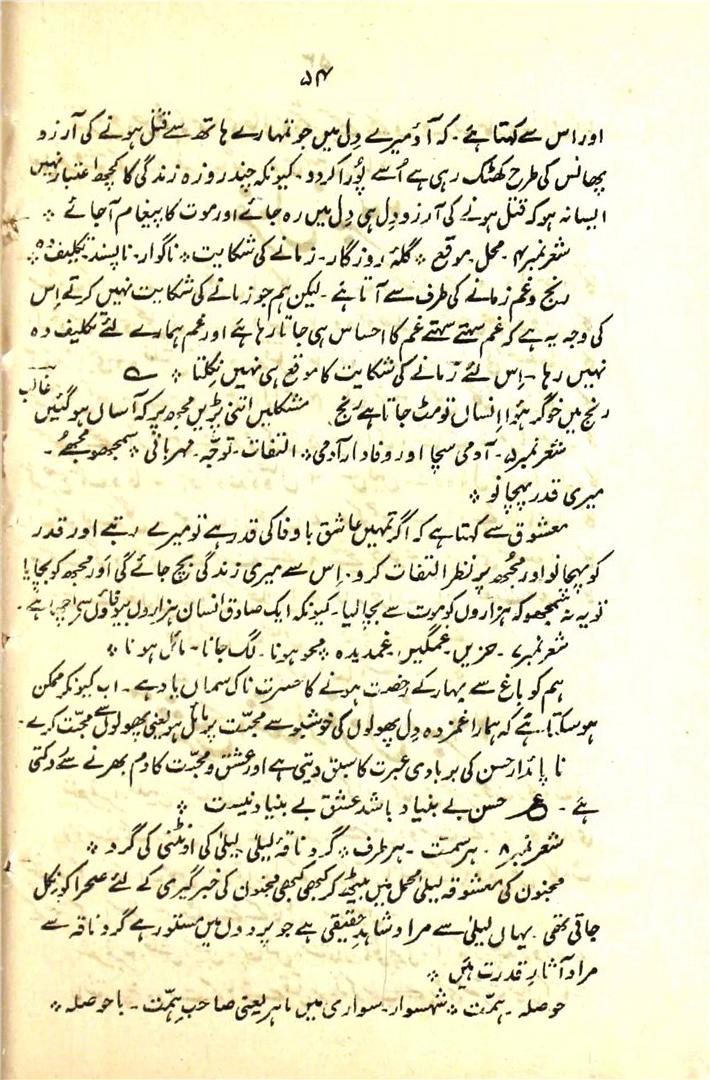 ۵۴
اور اس سے کہتا ہے۔ کہ آؤ میرے دِل میں جو تمہارے ہاتھ سے قتل ہونے کی آرزو
پھانس کی طرح کھٹک رہی ہے اُسے پُورا کردو۔ کیونکہ چند روزہ زندگی کا کچھ اعتبار نہیں
ایسا نہ ہو کہ قتل ہونے کی آرزو دِل ہی دِل میں رہ جائے اور موت کا پیغام آجائے ❊
شعر نمبر۴۔ محل۔ موقع ❊ گلۂ روزگار۔ زمانے کی شکایت ❊ ناگوار۔ ناپسند۔ تکلیف دہ ❊
رنج و غم زمانے کی طرف سے آتا ہے۔ لیکن ہم جو زمانے کی شکایت نہیں کرتے اِس
کی وجہ یہ ہے کہ غم سہتے سہتے غم کا احساس ہی جاتا رہا ہے اور غم ہمارے لئے تکلیف دہ
نہیں رہا۔ اِس لئے زمانے کی شکایت کا موقع ہی نہیں نکلتا ❊ ؎
رنج میں خوگر ہؤا اِنساں تو مٹ جاتا ہے رنج مشکلیں اتنی پڑیں مجھ پر کہ آساں ہوگئیں غالب
شعر نمبر۵۔ آدمی سچا اور وفادار آدمی ❊ التفات۔ توجّہ۔ مہربانی ❊ سمجھو مجھے۔
میری قدر پہچانو ❊
معشوق سے کہتا ہے کہ اگر تمہیں عاشق باوفا کی قدر ہے تو میرے رتبے اور قدر
کو پہچانو اور مجُھ پر نظر التفات کرو۔ اِس سے میری زندگی بچ جائے گی اور مجھ کو بچایا
تو یہ سمجھو کہ ہزاروں کو موت سے بچالیا۔ کیونکہ ایک صادق انسان ہزاروں بیوفاؤں سے اچھا ہے۔
شعر نمبر۷۔ حزیں۔ غمگیں۔ غمدیدہ ❊ محو ہونا۔ لگ جانا۔ مائل ہونا ❊
ہم کو باغ سے بہار کے رخصت ہونے کا حسرت ناک سماں یاد ہے۔ اب کیونکر ممکن
ہوسکتا ہے کہ ہمارا غمزدہ دِل پھولوں کی خوشبو سے محبّت پر مائل ہو یعنی پھولوں سے محبّت کرے۔
ناپائدار حسن کی بربادی عبرت کا سبق دیتی ہے اور عشق و محبّت کا دم بھرنے سے روکتی
ہے۔ ع حسن بے بنیاد باشد عشق بے بنیاد نیست ❊
شعر نمبر۸۔ ہر سمت۔ ہر طرف ❊ گردِ ناقۂ لیلیٰ۔ لیلیٰ کی اونٹنی کی گرد ❊
مجنون کی معشوقہ لیلیٰ محمل میں بیٹھ کر کبھی کبھی مجنون کی خبر گیری کے لئے صحرا کو نکل
جاتی تھی۔ یہاں لیلیٰ سے مراد شاہدِ حقیقی ہے جو پردوں میں مستور ہے گردِ ناقہ سے
مراد آثارِ قدرت ہیں ❊
حوصلہ۔ ہمّت ❊ شہسوار۔ سواری میں ماہر یعنی صاحبِ ہمّت۔ باحوصلہ ❊